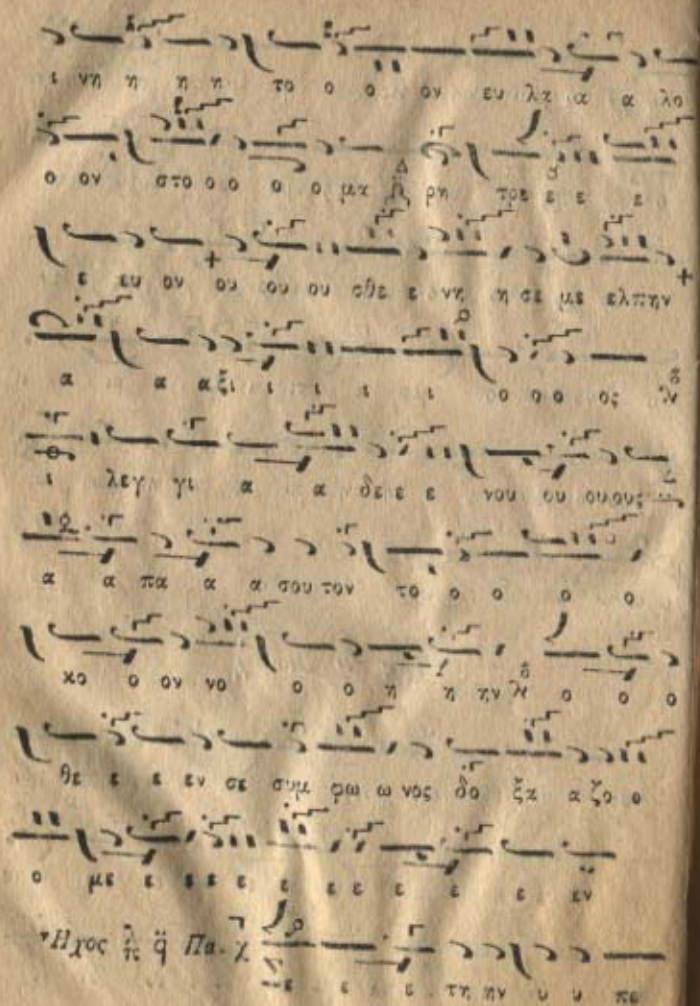 ι νη η η η το ο ο ον ευ λα α α λο
ο ον στο ο ο ο ο μα ρη τρε ε ε ε
ε ευ ον ου ου ου σθε ε νη η σε με ελπην
α α α ξι ι ι ι ι ο ο ο ος
ι λεγ γι α α δε ε ε νου ου ουους
α α πα α α σου τον το ο ο ο ο
κο ο ον νο ο ο η η ην ο ο ο
θε ε ε εν σε συμ φω ω νος δο ξα α ζο ο
ο με ε ε ε ε ε ε ε ε ε ε εν
Ηχος λ π q Πα.
ε ε ε τη ην υ υ πε